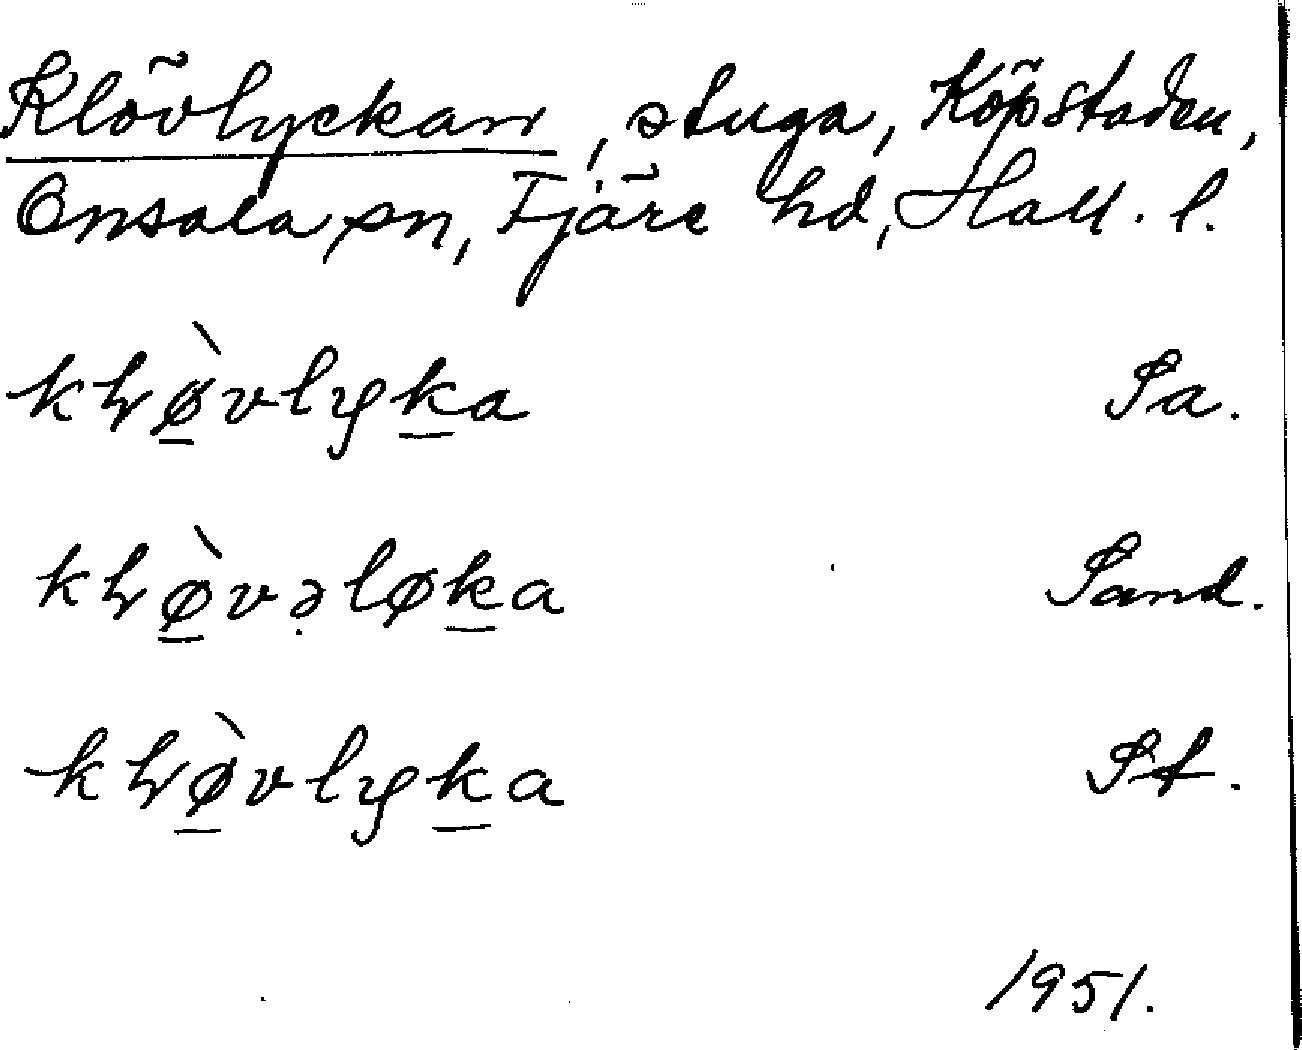 Klövlyckan, stuga, Köpstaden,
Onsala sn, Fjäre hd, Hall. l.
kɫø̠̀vlyk̠a Sa.
kɫø̠̀və̣løk̠a Sand.
kɫø̠̀vlyk̠a St.
1951.